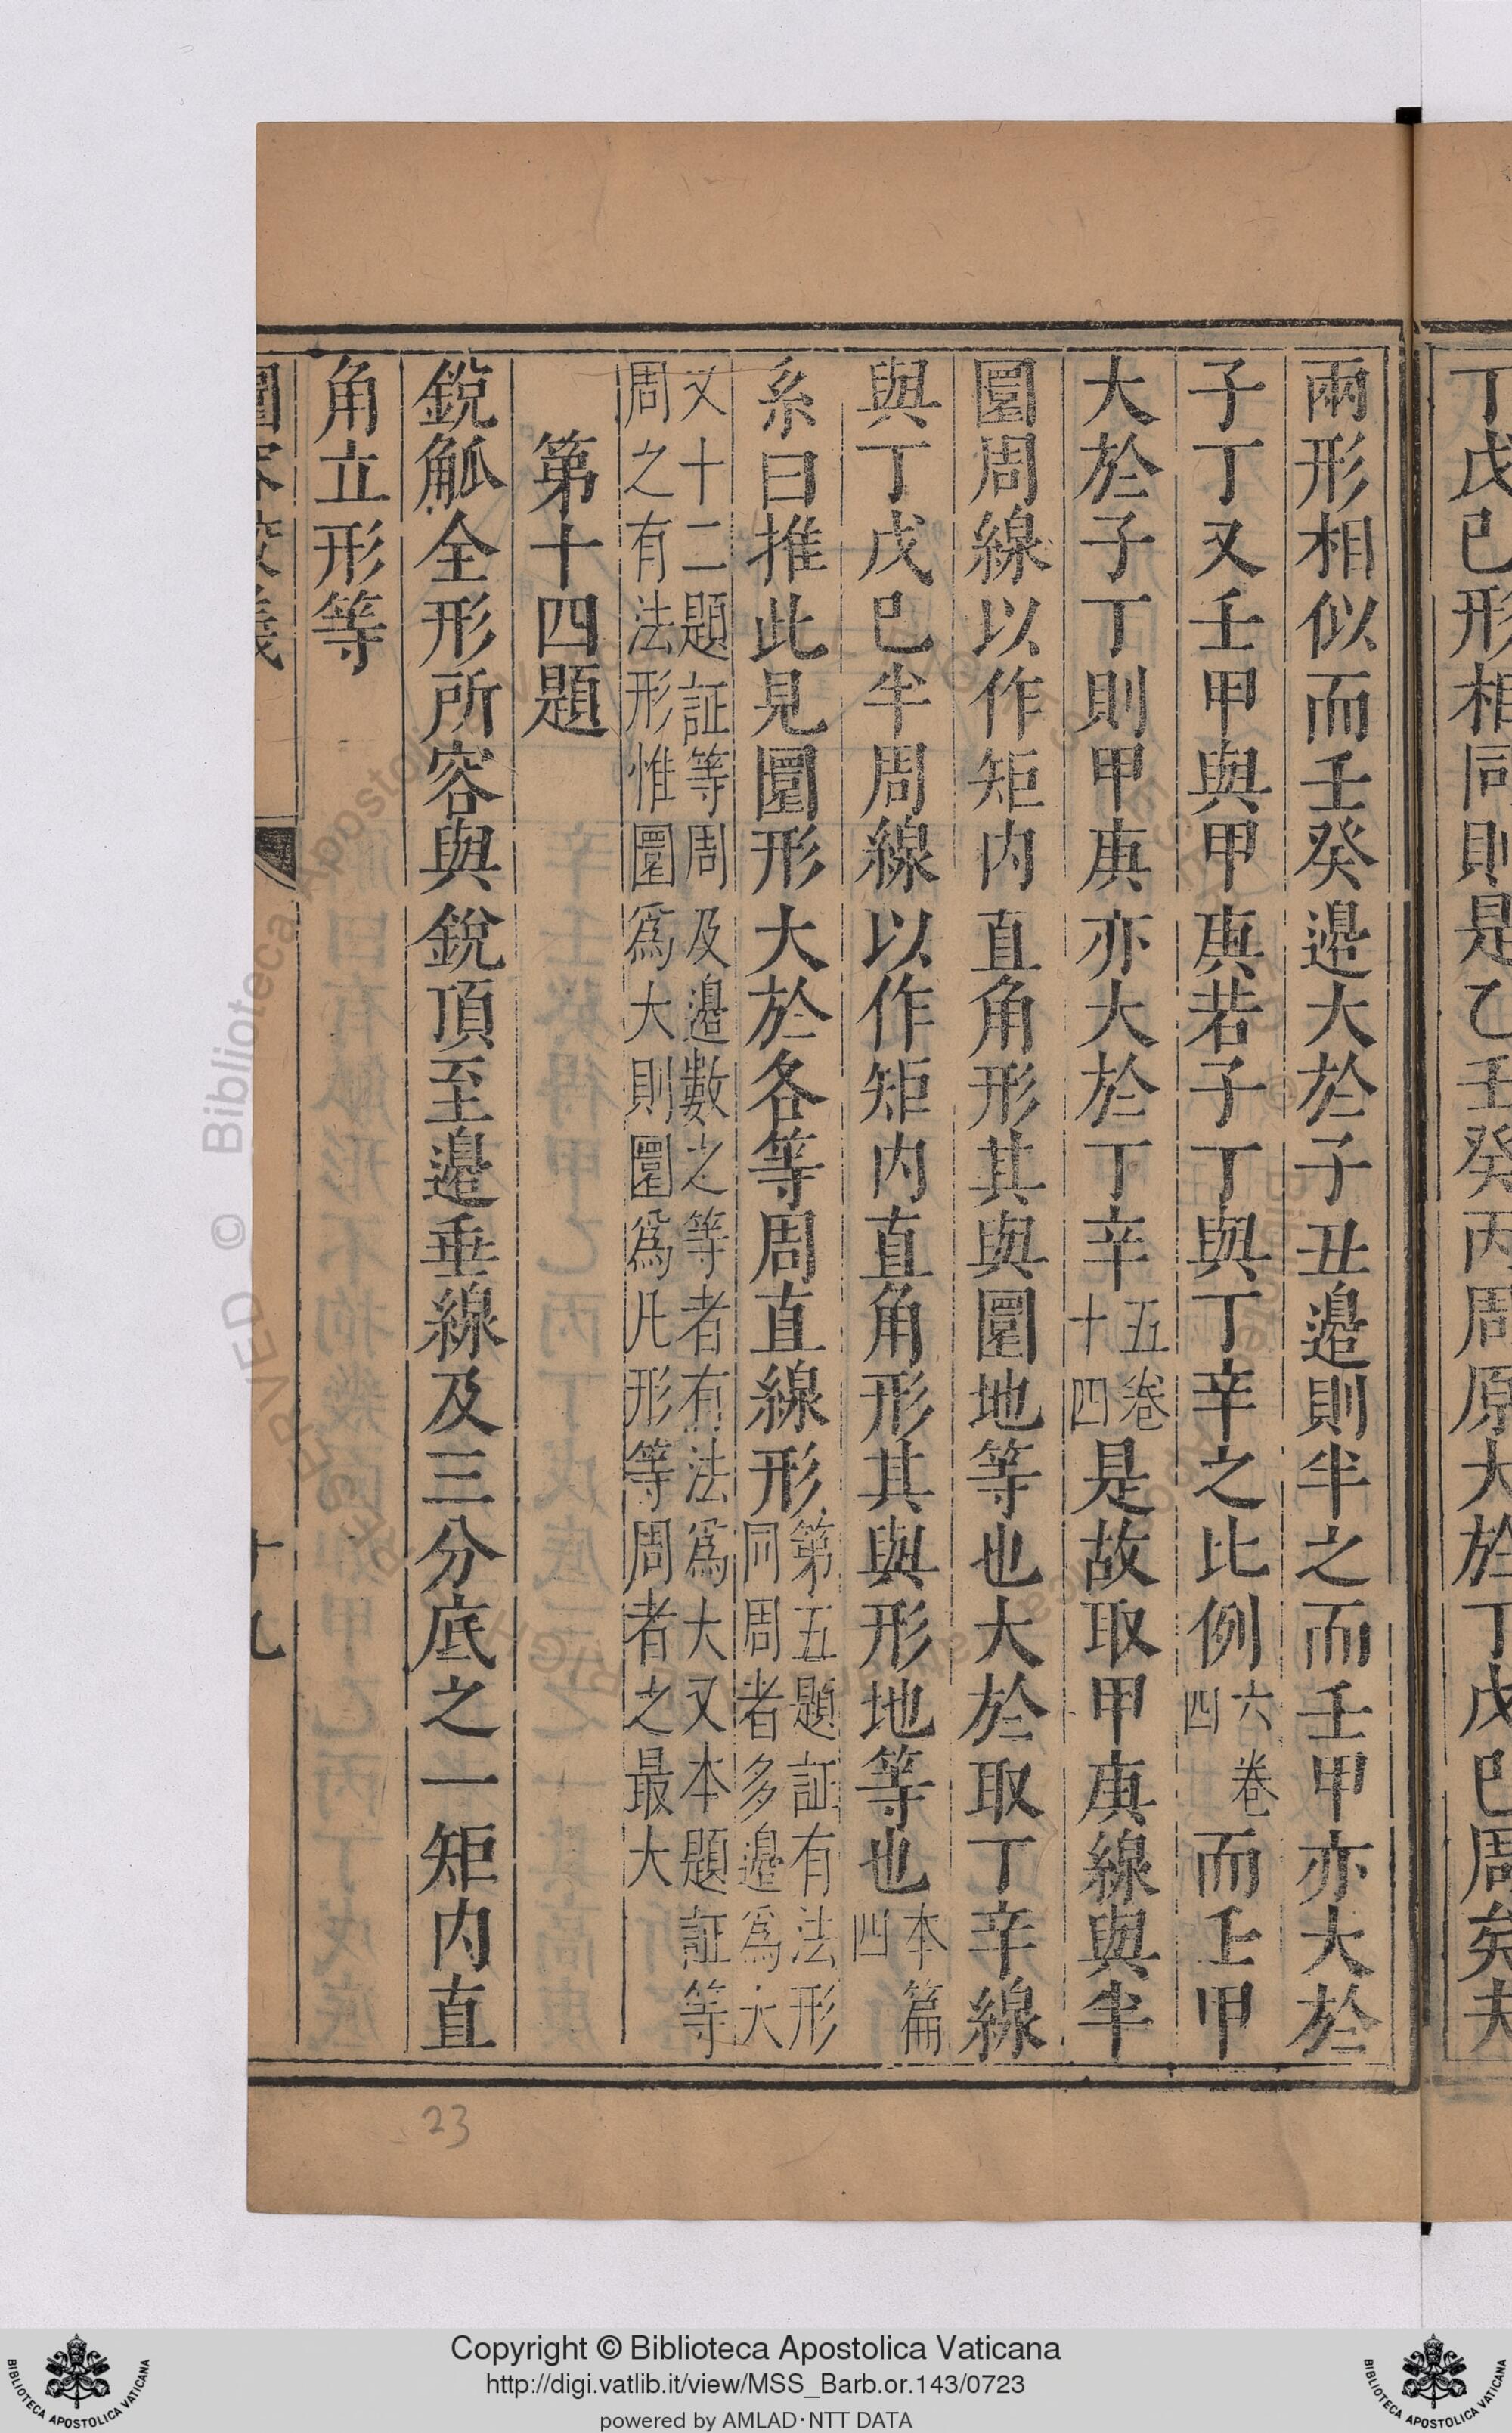 丁戊巳形相同則是乙壬癸丙周原大於丁戊巳周矣夫
兩形相似而壬癸邉大於子丑邉則半之而壬甲亦大於
子丁又壬甲與甲庚若子丁與丁辛之比例六卷四而壬甲
大於子丁則甲庚亦大於丁辛五卷十四是故取甲庚線與半
圜周線以作矩内直角形其與圜地等也大於取丁辛線
與丁戊巳半周線以作矩内直角形其與形地等也本篇四
系曰推此見圜形大於各等周直線形第五題証有法形同周者多邉為大
又十二題証等周及邉數之等者有法為大又本題証等
周之有法形惟圜為大則圜為凡形等周者之最大
第十四題
銳觚全形所容與銳頂至邉垂線及三分底之一矩内直
角立形等
圜容較義
十九
23
© Biblioteca Apostolica Vaticana
Copyright © Biblioteca Apostolica Vaticana
http://digi.vatlib.it/view/MSS_Barb.or.143/0723
powered by AMLAD·NTT DATA
BIBLIOTECA APOSTOLICA VATICANA
BIBLIOTECA APOSTOLICA VATICANA